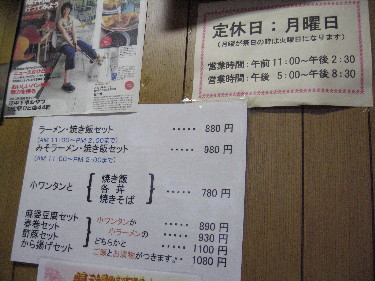 定休日：月曜日
（月曜が祭日の時は火曜日になります）
営業時間：午前 11:00～午後 2:30
営業時間：午後 5:00～午後 8:30
ラーメン・焼き飯セット ‥‥‥ 880 円
(AM 11:00～PM 2:00まで)
みそラーメン・焼き飯セット ‥‥‥ 980 円
(AM 11:00～PM 2:00まで)
小ワンタンと 焼き飯 各丼 焼きそば ‥‥‥ 780 円
麻婆豆腐セット 小ワンタンか ‥‥‥ 890 円
春巻セット 小ラーメンの ‥‥‥ 930 円
酢豚セット どちらかと ‥‥‥ 1100 円
から揚げセット ご飯とお漬物がつきます。‥ 1080 円